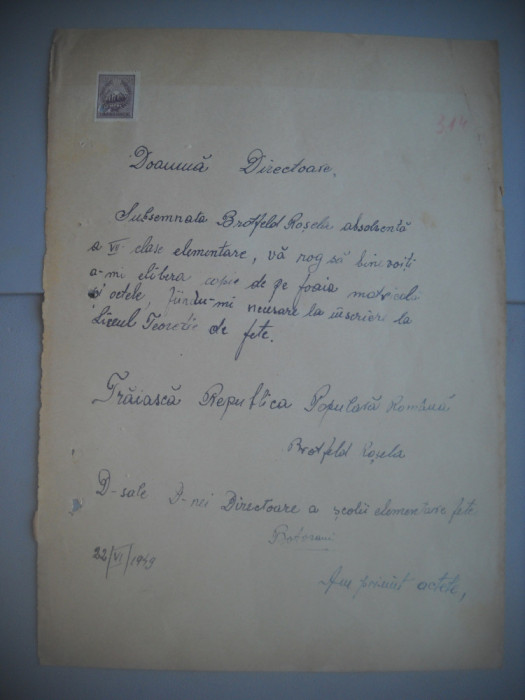 314
Doamnă Directoare,
Subsemnata Brotfeld Roșela absolventă
a VII clase elementare, vă rog să binevoiți
a-mi elibera copie de pe foaia matricolă
și actele, fiindu-mi necesare la înscrieri la
Liceul Teoretic de fete.
Trăiască Republica Populară Română
Brotfeld Roșela
D-sale D-nei Directoare a școlii elementare fete
Botosani
22/VI/1949
Am primit actele,